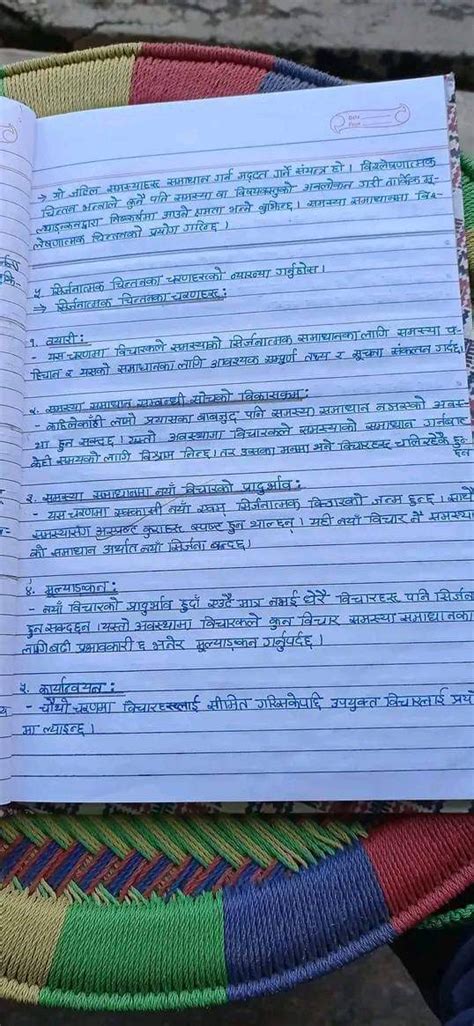 Date
Page
→ यो जटिल समस्याहरू समाधान गर्न मद्दत गर्ने संयन्त्र हो। विश्लेषणात्मक
चिन्तन भन्नाले कुनै पनि समस्या वा विषयवस्तुको अवलोकन गरी तार्किक मू-
ल्याङ्कनद्वारा निष्कर्षमा आउने क्षमता भन्ने बुझिन्छ। समस्या समाधानमा विश्-
लेषणात्मक चिन्तनको प्रयोग गरिन्छ।
५. सिर्जनात्मक चिन्तनका चरणहरूको व्याख्या गर्नुहोस।
→ सिर्जनात्मक चिन्तनका चरणहरू:
१. तयारी:
- यस चरणमा विचारकले समस्याको सिर्जनात्मक समाधानका लागि समस्या प-
हिचान र यसको समाधानका लागि आवश्यक सम्पूर्ण तथ्य र सूचना संकलन गर्दछ।
२. समस्या समाधान सम्बन्धी सोचको विकासक्रम:
- कहिलेकाँही लामो प्रयासका बाबजुद पनि समस्या समाधान नआएको अवस्-
था हुन सक्दछ। यस्तो अवस्थामा विचारकले समस्याको समाधान गर्नबाट
केही समयको लागि विश्राम लिन्छ। तर उसका मनमा भने विचारहरू चलिरहेकै हु-
न्छन
३. समस्या समाधानमा नयाँ विचारको प्रादुर्भाव:
- यस चरणमा एक्कासी नयाँ एवम् सिर्जनात्मक विचारको जन्म हुन्छ। साथै
समस्यासँग अस्पष्ट कुराहरू स्पष्ट हुन थाल्छन्। यही नयाँ विचार नै समस्या
को समाधान अर्थात नयाँ सिर्जना बन्दछ।
४. मूल्याङ्कन:
- नयाँ विचारको प्रादुर्भाव हुदाँ एउटै मात्र नभई धेरै विचारहरू पनि सिर्जना
हुन सक्दछन्। यस्तो अवस्थामा विचारकले कुन विचार समस्या समाधानका
लागि बढी प्रभावकारी छ भनेर मूल्याङ्कन गर्नुपर्दछ।
५. कार्यान्वयन:
- चौथो चरणमा विचारहरूलाई सीमित गरिसकेपछि उपयुक्त विचारलाई प्रयो
मा ल्याइन्छ।